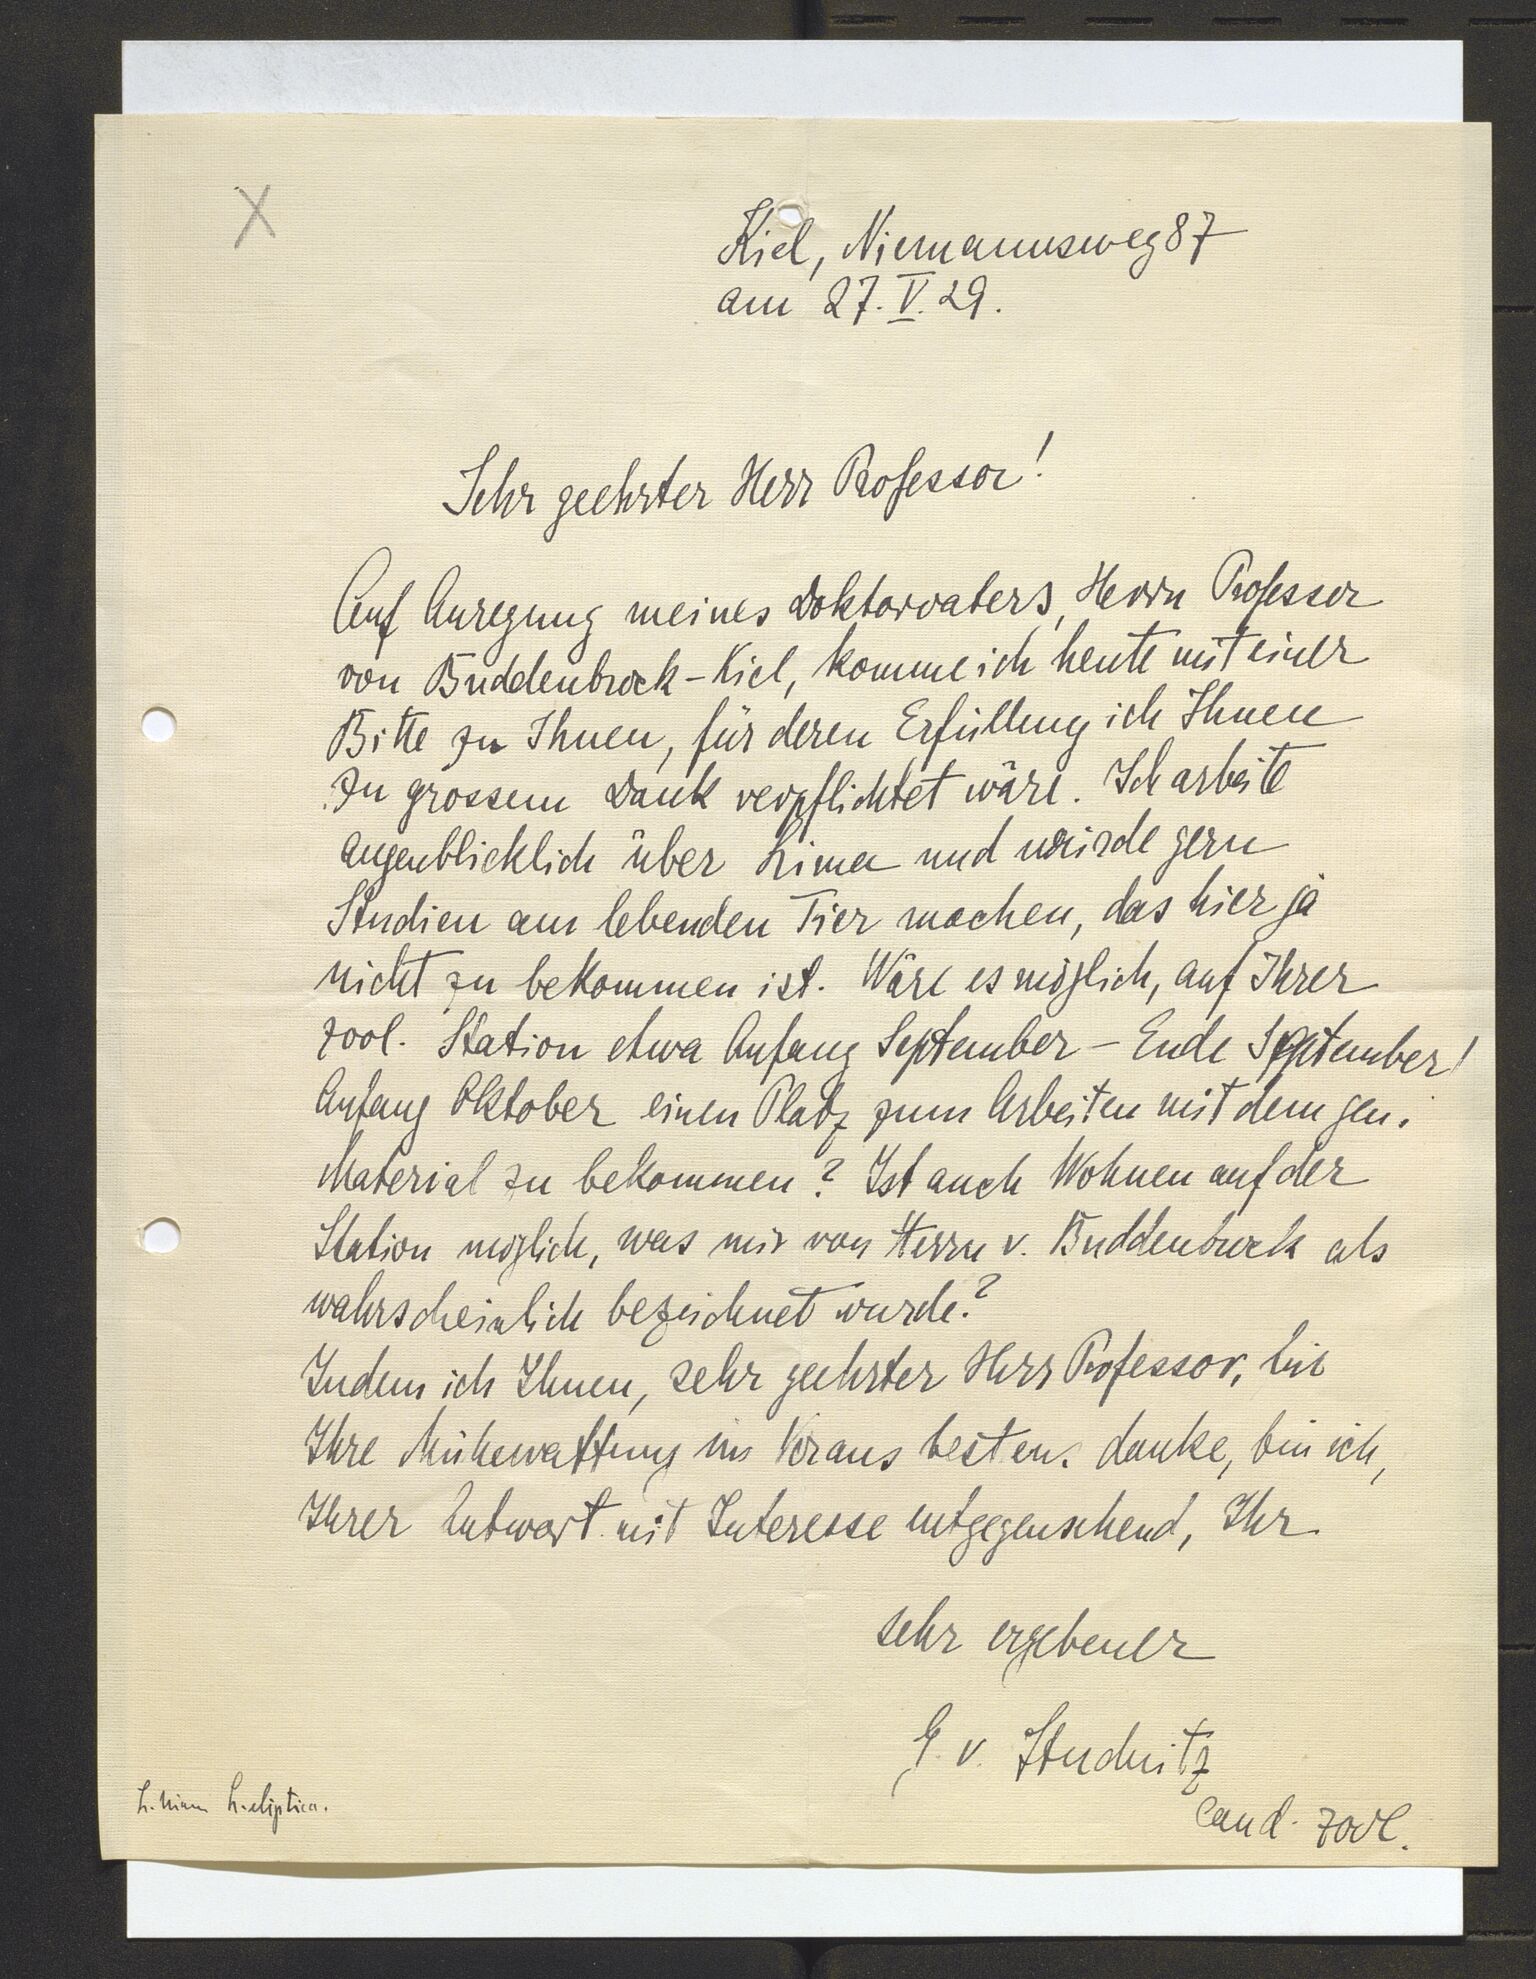 X
Kiel, Niemannsweg 87
am 27. V. 29.
Sehr geehrter Herr Professor!
Auf Anregung meines Doktorvaters, Herrn Professor
von Buddenbrock-Kiel, komme ich heute mit einer
Bitte zu Ihnen, für deren Erfüllung ich Ihnen
zu grossem Dank verpflichtet wäre. Ich arbeite
augenblicklich über Lima und würde gern
Studien am lebenden Tier machen, das hier ja
nicht zu bekommen ist. Wäre es möglich, auf Ihrer
zool. Station etwa Anfang September – Ende September/
Anfang Oktober einen Platz zum Arbeiten mit dem gen.
Material zu bekommen? Ist auch Wohnen auf der
Station möglich, was mir von Herrn v. Buddenbrock als
wahrscheinlich bezeichnet wurde?
Indem ich Ihnen, sehr geehrter Herr Professor, für
Ihre Mühewaltung im Voraus bestens danke, bin ich,
Ihrer Antwort mit Interesse entgegensehend, Ihr
sehr ergebener
G. v. Studnitz
cand. zool.
L. hians L. eliptica.